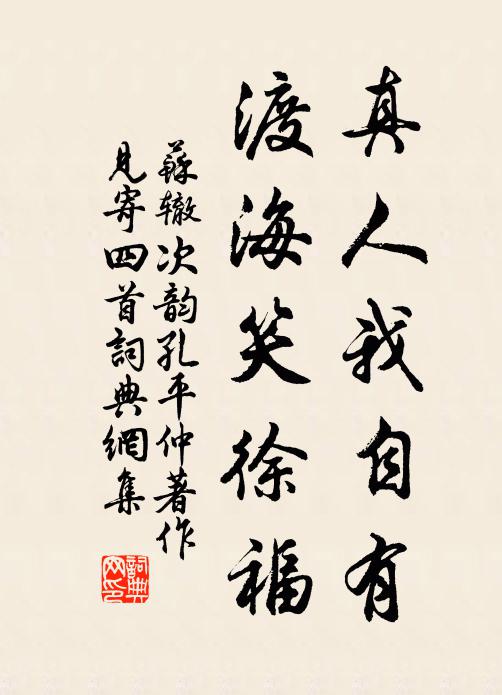 真人我自有
渡海笑徐福
蘇轍次韵孔平仲著作
見寄四首詞典網集
詞典
网印